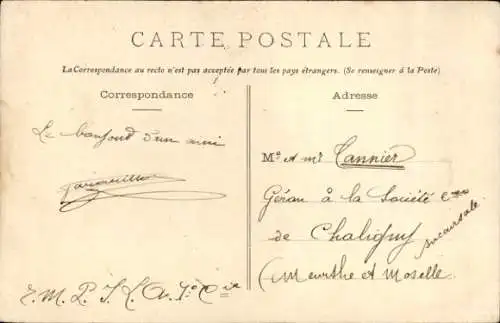 CARTE POSTALE
La Correspondance au recto n'est pas acceptée par tous les pays étrangers. (Se renseigner à la Poste)
Correspondance
Adresse
Le bonjour d'un ami
Me A mr Tannier
Géran à la Société
succursale
de Chaligny
(Meurthe et Moselle